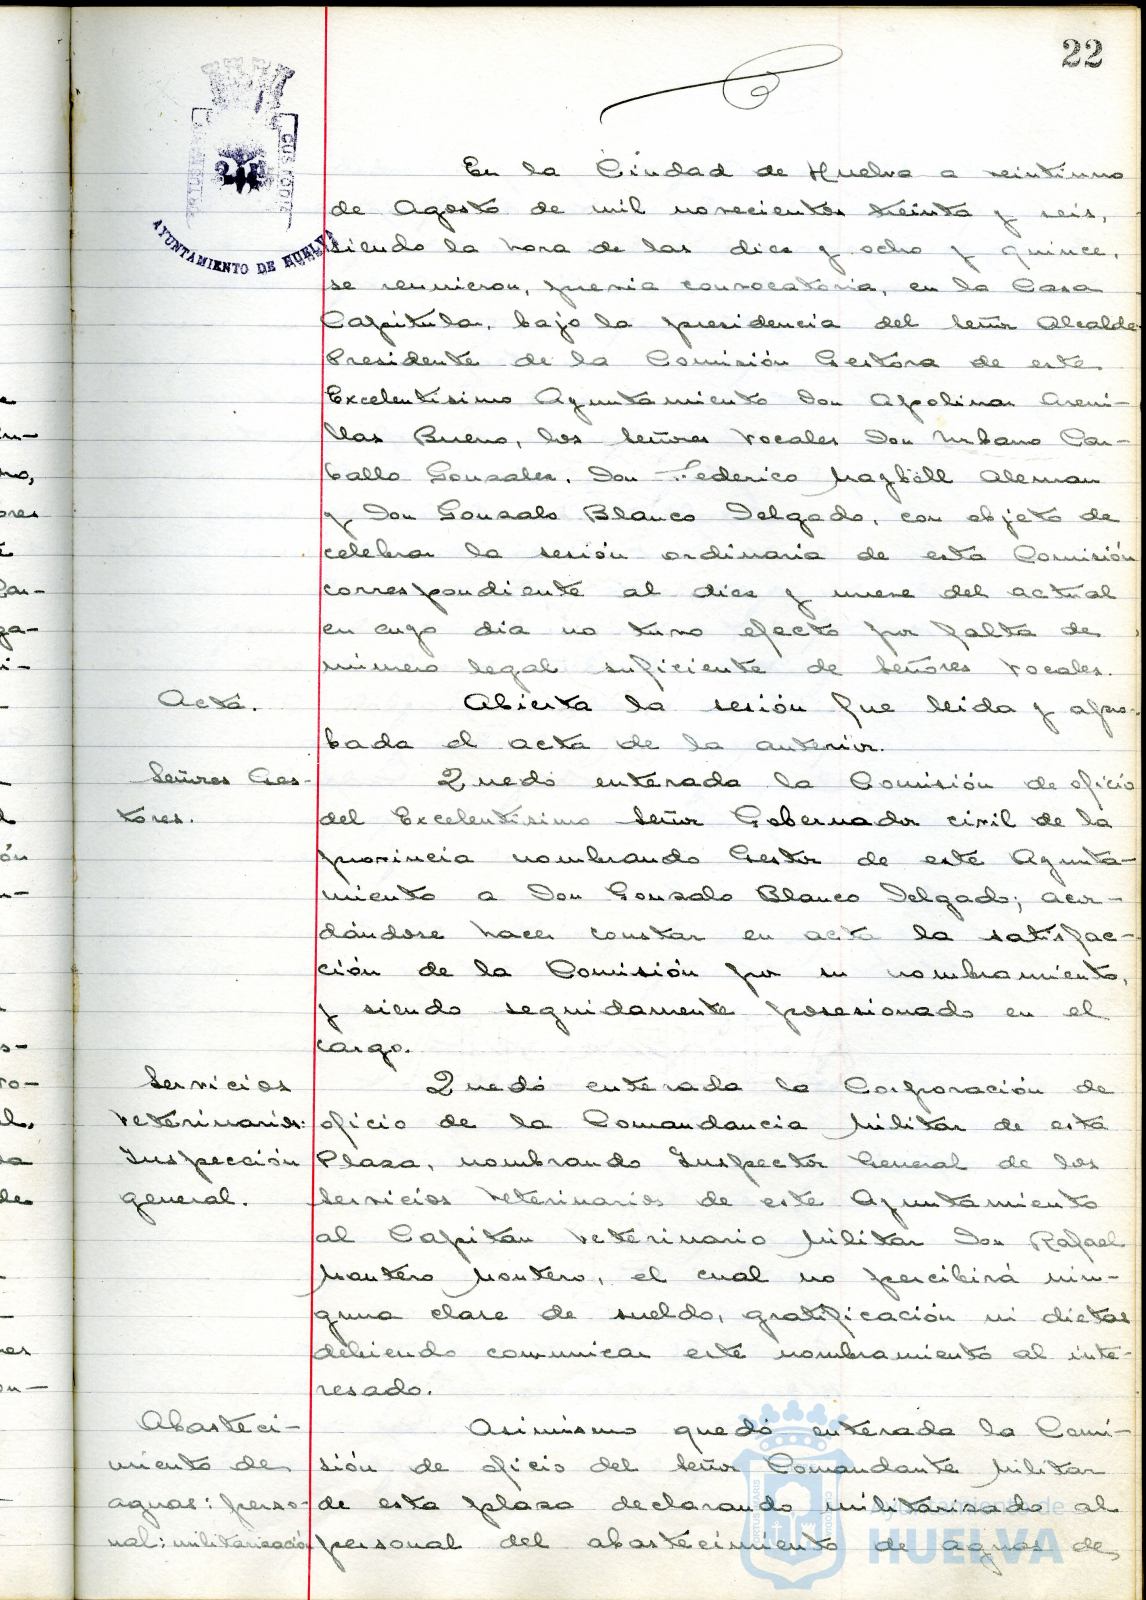 22
AYUNTAMIENTO DE HUELVA
En la Ciudad de Huelva a veintiuno
de Agosto de mil novecientos treinta y seis,
siendo la hora de las diez y ocho y quince,
se reunieron, previa convocatoria, en la Casa
Capitular, bajo la presidencia del Señor Alcalde
Presidente de la Comisión Gestora de este
Excelentísimo Ayuntamiento Don Apolinar Areni-
llas Bueno, los Señores Vocales Don Urbano Car-
ballo Gonzalez, Don Federico Aleman
y Don Gonzalo Blanco Delgado, con objeto de
celebrar la sesión ordinaria de esta Comisión
correspondiente al diez y nueve del actual
en cuyo día no tuvo efecto por falta de
número legal suficiente de Señores Vocales.
Acta.
Abierta la sesión fue leida y apro-
bada el acta de la anterior.
Señores Ges-
tores.
Quedó enterada la Comisión de oficio
del Excelentísimo Señor Gobernador civil de la
provincia nombrando Gestor de este Ayunta-
miento a Don Gonzalo Blanco Delgado; acor-
dándose hacer constar en acta la satisfac-
ción de la Comisión por su nombramiento,
y siendo seguidamente posesionado en el
cargo.
Servicios
Veterinarios:
Inspección
general.
Quedó enterada la Corporación de
oficio de la Comandancia Militar de esta
Plaza, nombrando Inspector General de los
Servicios Veterinarios de este Ayuntamiento
al Capitan Veterinario Militar Don Rafael
Montero Montero, el cual no percibirá nin-
guna clase de sueldo, gratificación ni dietas
debiendo comunicar este nombramiento al inte-
resado.
Abasteci-
miento de
aguas: perso-
nal: militarización
Asimismo quedó enterada la Comi-
sión de oficio del Señor Comandante Militar
de esta plaza declarando militarizado al
personal del abastecimiento de aguas de
Ayuntamiento de
HUELVA